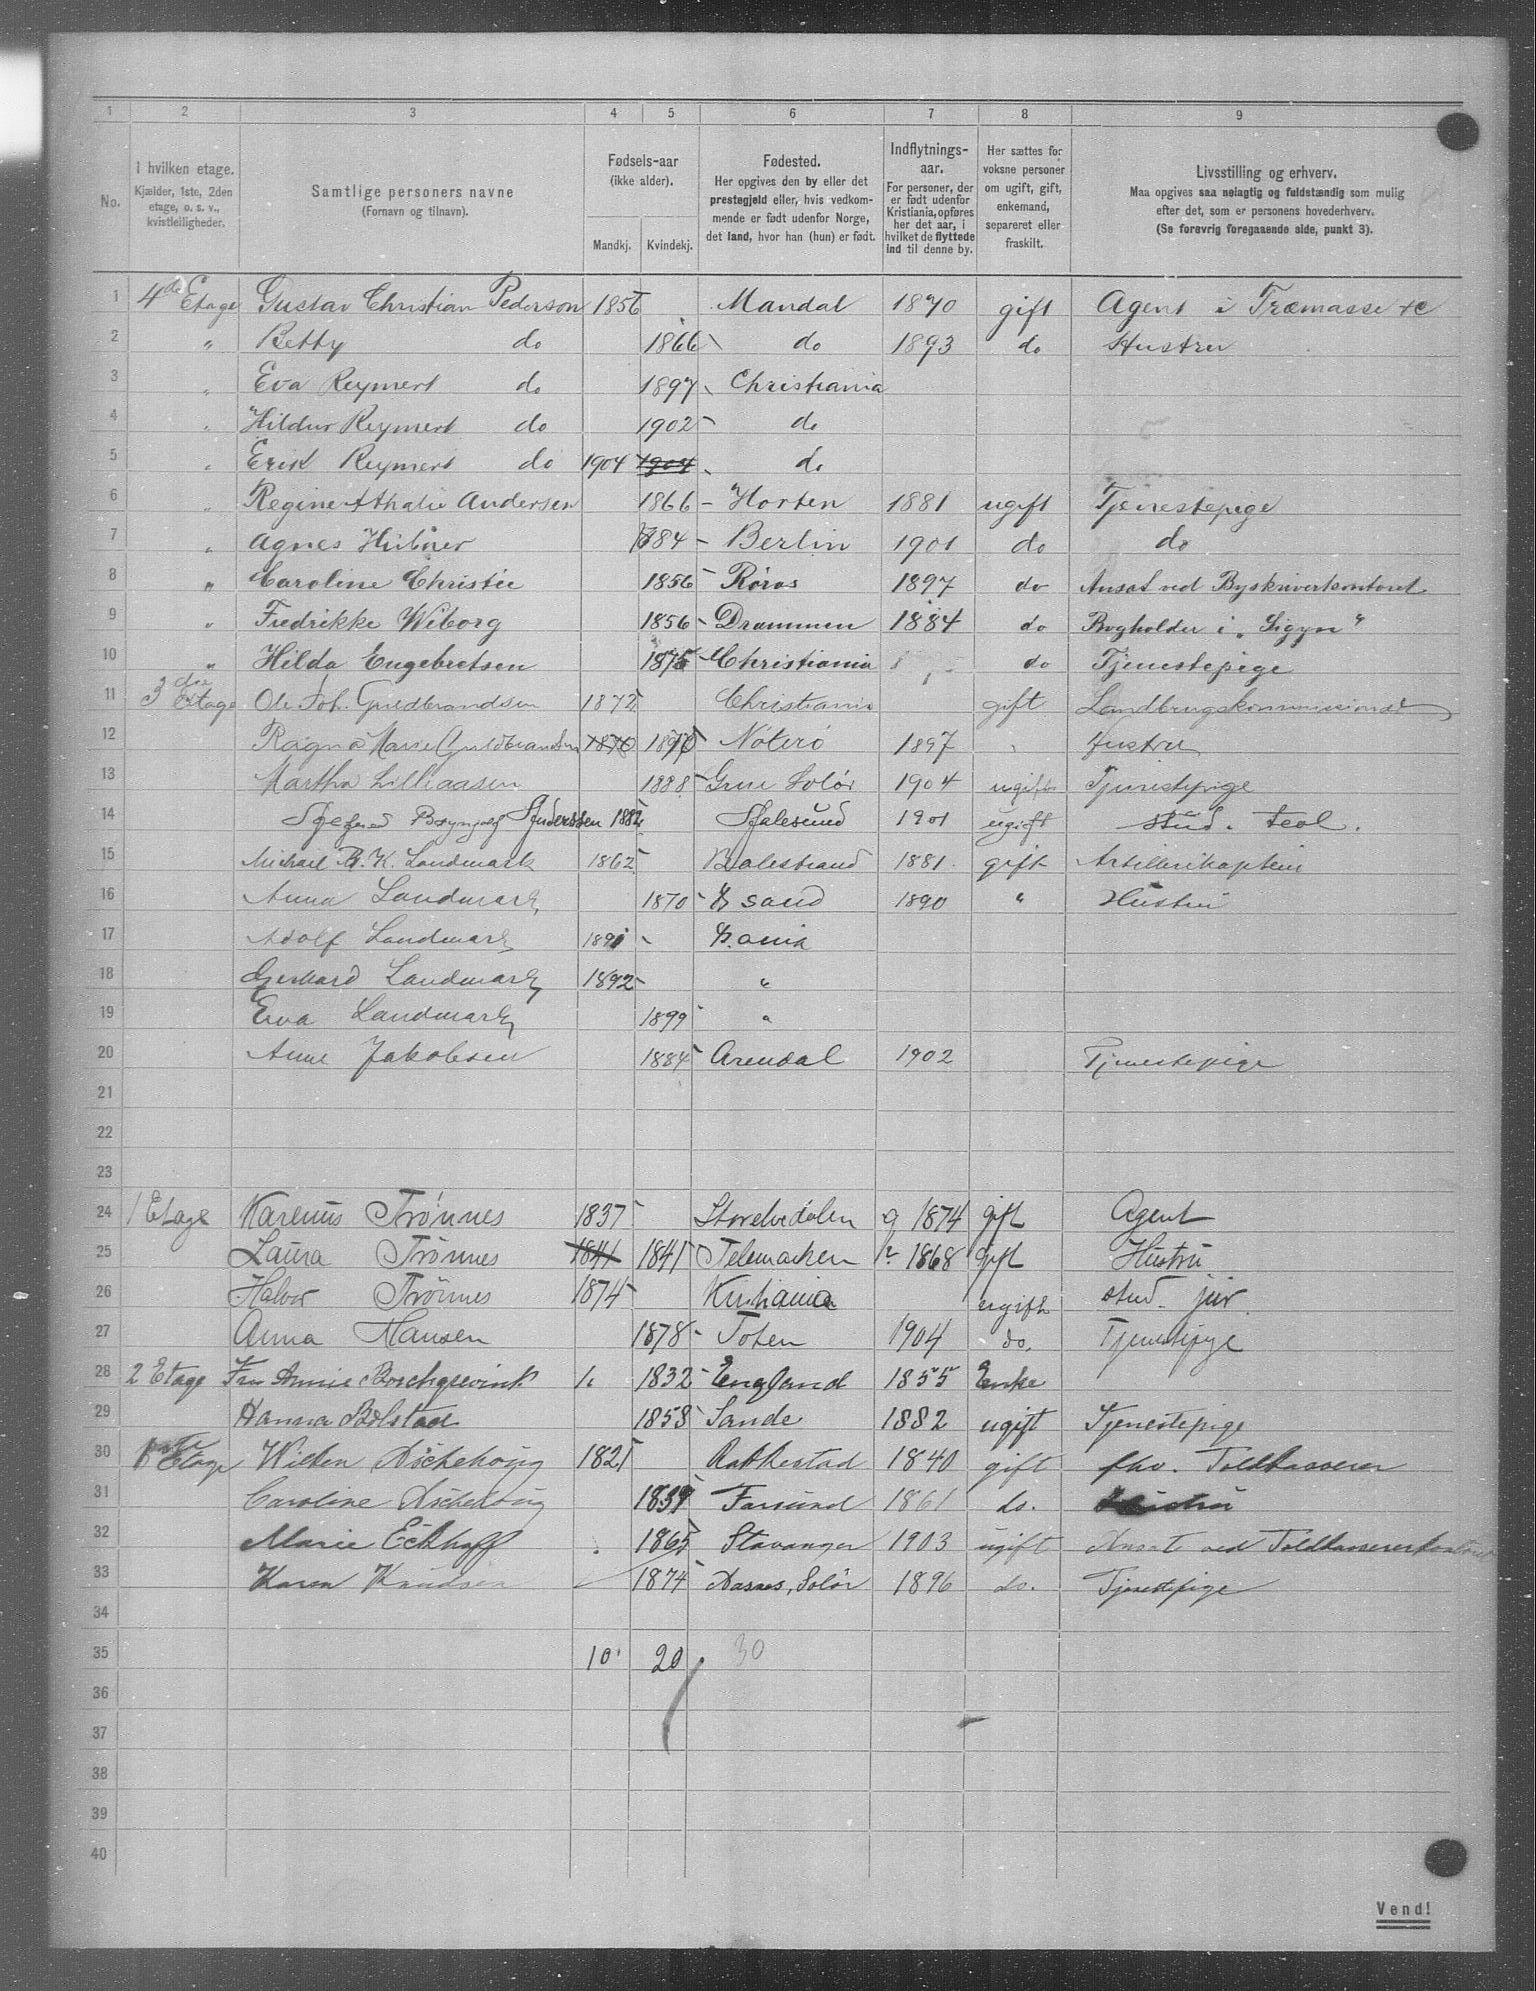 1 2 3 4 5 6 7 8 9
No. I hvilken etage. Kjælder, 1ste, 2den etage, o. s. v., kvistleiligheder. Samtlige personers navne (Fornavn og tilnavn). Fødsels-aar (ikke alder). Mandkj. Kvindekj. Fødested. Her opgives den by eller det prestegjeld eller, hvis vedkommende er født udenfor Norge, det land, hvor han (hun) er født. Indflytnings-aar. For personer, der er født udenfor Kristiania, opføres her det aar, i hvilket de flyttede ind til denne by. Her sættes for voksne personer om ugift, gift, enkemand, separeret eller fraskilt. Livsstilling og erhverv. Maa opgives saa nøiagtig og fuldstændig som mulig efter det, som er personens hovederhverv. (Se forøvrig foregaaende side, punkt 3).
1 4de Etage Gustav Christian Pederson 1856 Mandal 1870 gift Agent i Træmasse &c
2 " Betty do 1866 do 1893 do Hustru
3 " Eva Reymert do 1897 Christiania
4 " Hildur Reymert do 1902 do
5 " Erik Reymert do 1904 1904 do
6 " Regine Athalie Andersen 1866 Horten 1881 ugift Tjenestepige
7 " Agnes Hübner 1884 Berlin 1901 do do
8 " Caroline Christie 1856 Röros 1897 do Ansat ved Byskriverkontoret
9 " Fredrikke Wiborg 1856 Drammen 1884 do Bogholder i "Sigyn"
10 " Hilda Engebretsen 1875 Christiania do Tjenestepige
11 3die Etage Ole Joh. Guldbrandsen 1872 Christiania gift Landbrugskommissionær
12 Ragna Marie Guldbrandsen 1870 1870 Nöterö 1897 " Hustru
13 Martha Lilleaasen 1888 Grue Solör 1904 ugift Tjenestepige
14 Brynjolf 1882 1901 ugift stud. teol.
15 Michael B. K. Landmark 1862 Balestrand 1881 gift Artillerikaptein
16 Anna Landmark 1870 Kr sand 1890 " Hustru
17 Adolf Landmark 1891 Kr.ania
18 Gerhard Landmark 1892 "
19 Eva Landmark 1899 "
20 Anne Jakobsen 1884 Arendal 1902 Tjenestepige
21
22
23
24 1 Etage Karenus Trönnes 1837 Storelvedalen 1874 gift Agent
25 Laura Trönnes 1841 1841 Telemarken 1868 gift Hustru
26 Halvor Trönnes 1874 Kristiania ugift stud. jur.
27 Anna Hansen 1878 Toten 1904 do. Tjenestepige
28 2 Etage Fru Annie Borchgrevink 1832 England 1855 Enke
29 Hanna Bölstad 1858 Sande 1882 ugift Tjenestepige
30 Etage Wilken Aschehoug 1821 Rakkestad 1840 gift fhv. Toldkasserer
31 Caroline Aschehoug 1839 Farsund 1861 do. Hustru
32 Marie Eckhoff 1865 Stavanger 1903 ugift Ansat ved Toldkassererkontoret
33 Karen Knudsen 1874 Aasnes, Solör 1896 do. Tjenestepige
34
35 10 20 30
36
37
38
39
40
Vend!